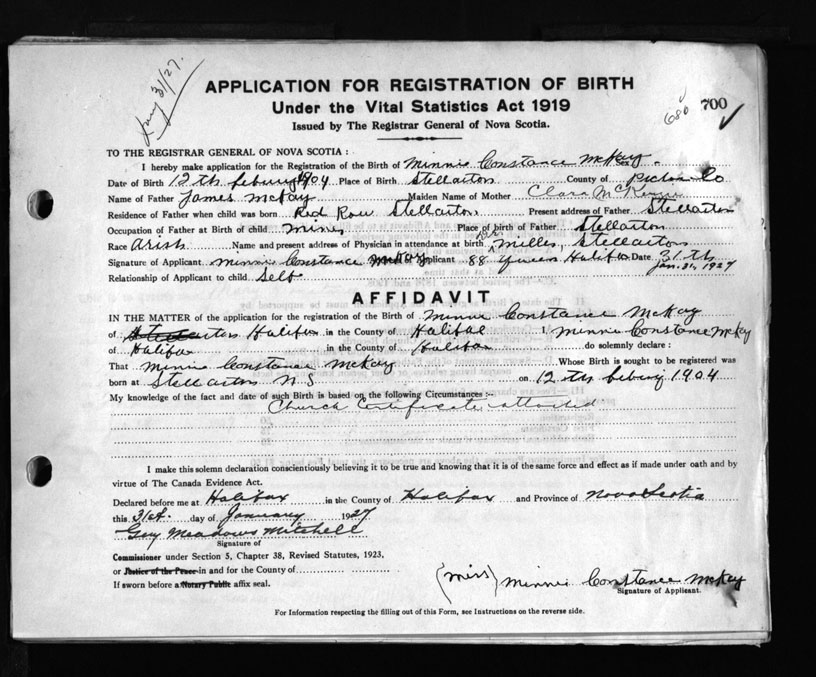 31/27.
APPLICATION FOR REGISTRATION OF BIRTH
Under the Vital Statistics Act 1919
Issued by The Registrar General of Nova Scotia.
680 700
TO THE REGISTRAR GENERAL OF NOVA SCOTIA :
I hereby make application for the Registration of the Birth of Minnie Constance McKay.
Date of Birth 12 th 1904 Place of Birth Stellarton County of Pictou Co
Name of Father James McKay Maiden Name of Mother Clara
Residence of Father when child was born Red Row Stellarton Present address of Father Stellarton
Occupation of Father at Birth of child Place of birth of Father Stellarton
Race Name and present address of Physician in attendance at birth Stellarton
Signature of Applicant Minnie Constance McKay of Applicant 88 Queen Halifax Date 31.th
Jan. 31, 1927
Relationship of Applicant to child Self
AFFIDAVIT
IN THE MATTER of the application for the registration of the Birth of Minnie Constance McKay
of Halifax in the County of Halifax I, Minnie Constance McKay
of Halifax in the County of Halifax do solemnly declare :
That Minnie Constance McKay Whose Birth is sought to be registered was
born at Stellarton N.S on 12 th 1904
My knowledge of the fact and date of such Birth is based on the following Circumstances :-
Church Certificate attached
I make this solemn declaration conscientiously believing it to be true and knowing that it is of the same force and effect as if made under oath and by
virtue of The Canada Evidence Act.
Declared before me at Halifax in the County of Halifax and Province of Nova Scotia
this 31st. day of January 1927
Guy Meadows Mitchell
Signature of
Commissioner under Section 5, Chapter 38, Revised Statutes, 1923,
or Justice of the Peace in and for the County of
If sworn before a Notary Public affix seal.
(Miss) Minnie Constance McKay
Signature of Applicant.
For Information respecting the filling out of this Form, see Instructions on the reverse side.